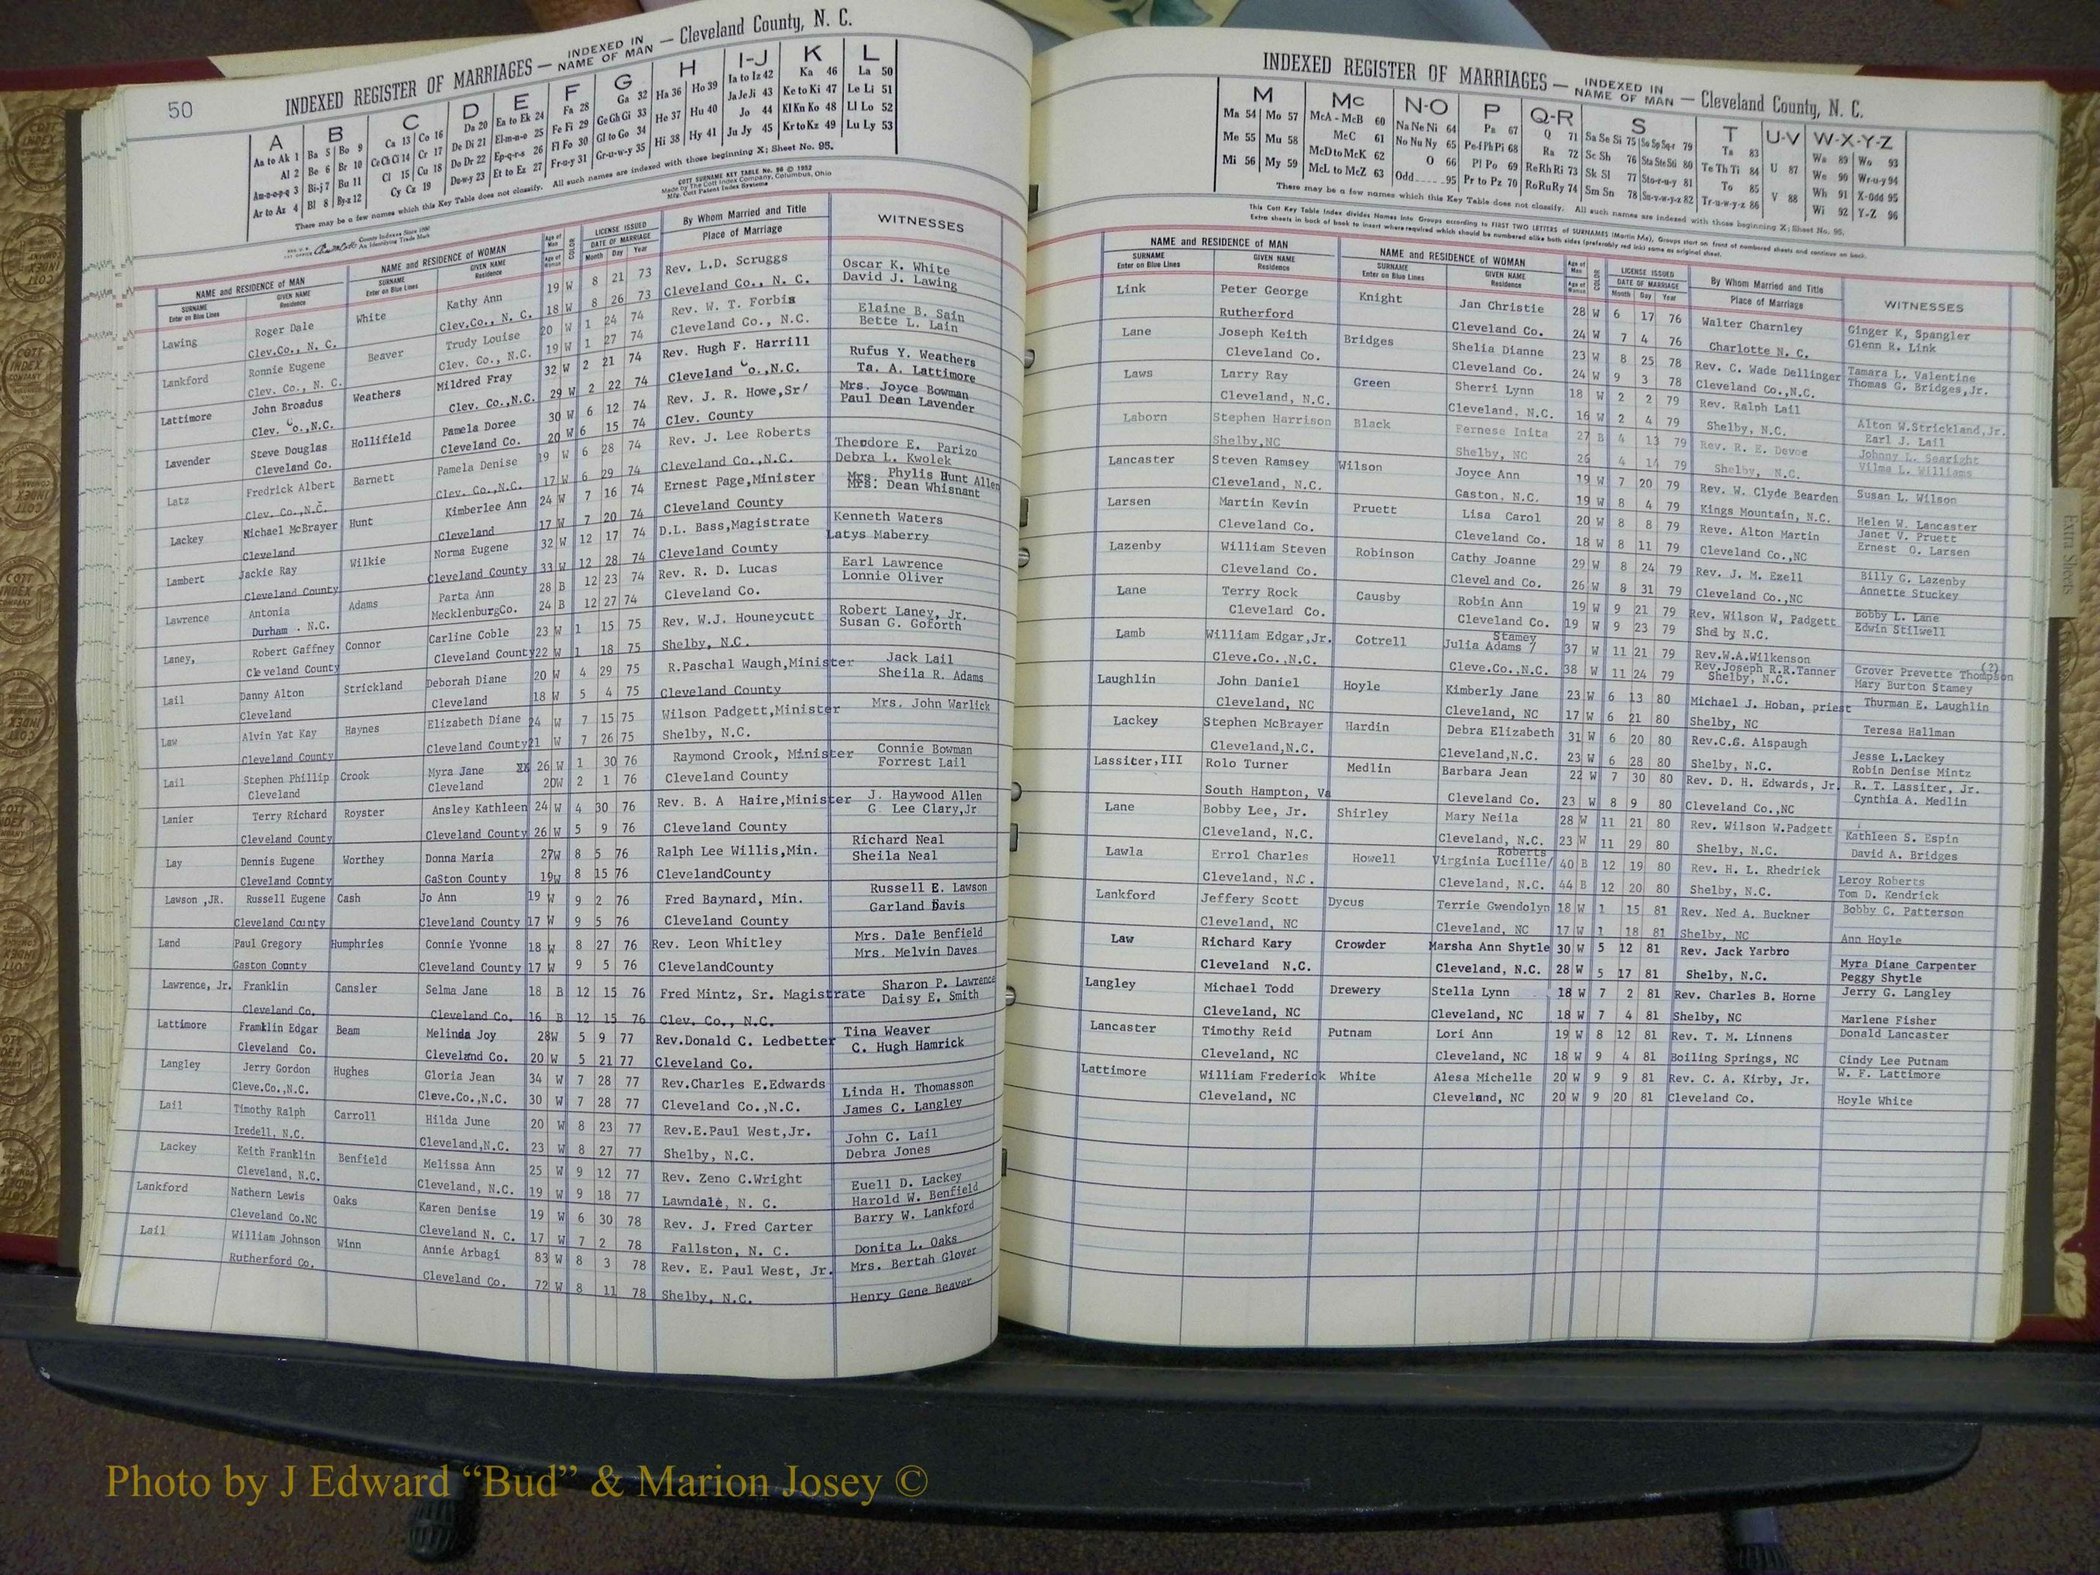 50
INDEXED REGISTER OF MARRIAGES — INDEXED IN NAME OF MAN — Cleveland County, N. C.
A B C D E F G H I-J K L
Aa to Ak 1 Ba 5 Bo 9 Ca 13 Co 16 Da 20 Ea to Ek 24 Fa 28 Ga 32 Ha 36 Ho 39 Ia to Iz 42 Ka 46 La 50
Al 2 Be 6 Br 10 Ce Ch Ci 14 Cr 17 De Di 21 El-m-n-o 25 Fe Fi 29 Ge Gh Gi 33 He 37 Hu 40 Ja Je Ji 43 Ke to Ki 47 Le Li 51
Am-n-o-p-q 3 Bi-j 7 Bu 11 Cl 15 Cu 18 Do Dr 22 Ep-q-r-s 26 Fl Fo 30 Gl to Go 34 Hi 38 Hy 41 Jo 44 Kl Kn Ko 48 Ll Lo 52
Ar to Az 4 Bl 8 By-z 12 Cy Cz 19 Du-w-y 23 Et to Ez 27 Fr-u-y 31 Gr-u-w-y 35 Ju Jy 45 Kr to Kz 49 Lu Ly 53
There may be a few names which this Key Table does not classify. All such names are indexed with those beginning X; Sheet No. 95.
COTT SURNAME KEY TABLE No. 96 © 1952
Made by The Cott Index Company, Columbus, Ohio
Mfg. Cott Patent Index Systems
County Indexes Since 1888
An Identifying Trade Mark
NAME and RESIDENCE OF MAN NAME and RESIDENCE OF WOMAN Age of Man Age of Woman COLOR LICENSE ISSUED DATE OF MARRIAGE By Whom Married and Title Place of Marriage WITNESSES
SURNAME Enter on Blue Lines GIVEN NAME Residence SURNAME Enter on Blue Lines GIVEN NAME Residence Month Day Year
Lawing Roger Dale White Kathy Ann 19 W 8 21 73 Rev. L.D. Scruggs Oscar K. White
Clev.Co., N. C. Clev.Co., N. C. 18 W 8 26 73 Cleveland Co., N. C. David J. Lawing
Lankford Ronnie Eugene Beaver Trudy Louise 20 W 1 24 74 Rev. W. T. Forbis Elaine B. Sain
Clev. Co., N. C. Clev. Co., N.C. 19 W 1 27 74 Cleveland Co., N.C. Bette L. Lain
Lattimore John Broadus Weathers Mildred Fray 32 W 2 21 74 Rev. Hugh F. Harrill Rufus Y. Weathers
Clev. Co.,N.C. Clev. Co.,N.C. 29 W 2 22 74 Cleveland Co.,N.C. Ta. A. Lattimore
Lavender Steve Douglas Hollifield Pamela Doree 30 W 6 12 74 Rev. J. R. Howe,Sr/ Mrs. Joyce Bowman
Cleveland Co. Cleveland Co. 20 W 6 15 74 Clev. County Paul Dean Lavender
Latz Fredrick Albert Barnett Pamela Denise 19 W 6 28 74 Rev. J. Lee Roberts Theodore E. Parizo
Clev. Co.,N.C. Clev. Co.,N.C. 17 W 6 29 74 Cleveland Co.,N.C. Debra L. Kwolek
Lackey Michael McBrayer Hunt Kimberlee Ann 24 W 7 16 74 Ernest Page,Minister Mrs. Phylis Hunt Allen
Cleveland Cleveland 17 W 7 20 74 Cleveland County Mrs. Dean Whisnant
Lambert Jackie Ray Wilkie Norma Eugene 32 W 12 17 74 D.L. Bass,Magistrate Kenneth Waters
Cleveland County Cleveland County 33 W 12 28 74 Cleveland County Latys Maberry
Lawrence Antonia Adams Parta Ann 28 B 12 23 74 Rev. R. D. Lucas Earl Lawrence
Durham . N.C. MecklenburgCo. 24 B 12 27 74 Cleveland Co. Lonnie Oliver
Laney, Robert Gaffney Connor Carline Coble 23 W 1 15 75 Rev. W.J. Houneycutt Robert Laney, Jr.
Cleveland County Cleveland County 22 W 1 18 75 Shelby, N.C. Susan G. Goforth
Lail Danny Alton Strickland Deborah Diane 20 W 4 29 75 R.Paschal Waugh,Minister Jack Lail
Cleveland Cleveland 18 W 5 4 75 Cleveland County Sheila R. Adams
Law Alvin Yat Kay Haynes Elizabeth Diane 24 W 7 15 75 Wilson Padgett,Minister Mrs. John Warlick
Cleveland County Cleveland County 21 W 7 26 75 Shelby, N.C.
Lail Stephen Phillip Crook Myra Jane 26 W 1 30 76 Raymond Crook, Minister Connie Bowman
Cleveland Cleveland 20W 2 1 76 Cleveland County Forrest Lail
Lanier Terry Richard Royster Ansley Kathleen 24 W 4 30 76 Rev. B. A Haire,Minister J. Haywood Allen
Cleveland County Cleveland County 26 W 5 9 76 Cleveland County G. Lee Clary,Jr
Lay Dennis Eugene Worthey Donna Maria 27W 8 5 76 Ralph Lee Willis,Min. Richard Neal
Cleveland County GaSton County 19W 8 15 76 ClevelandCounty Sheila Neal
Lawson ,JR. Russell Eugene Cash Jo Ann 19 W 9 2 76 Fred Baynard, Min. Russell E. Lawson
Cleveland County Cleveland County 17 W 9 5 76 Cleveland County Garland Davis
Land Paul Gregory Humphries Connie Yvonne 18 W 8 27 76 Rev. Leon Whitley Mrs. Dale Benfield
Gaston County Cleveland County 17 W 9 5 76 ClevelandCounty Mrs. Melvin Daves
Lawrence, Jr. Franklin Cansler Selma Jane 18 B 12 15 76 Fred Mintz, Sr. Magistrate Sharon P. Lawrence
Cleveland Co. Cleveland Co. 16 B 12 15 76 Clev. Co., N.C. Daisy E. Smith
Lattimore Franklin Edgar Beam Melinda Joy 28W 5 9 77 Rev.Donald C. Ledbetter Tina Weaver
Cleveland Co. Cleveland Co. 20 W 5 21 77 Cleveland Co. C. Hugh Hamrick
Langley Jerry Gordon Hughes Gloria Jean 34 W 7 28 77 Rev.Charles E.Edwards Linda H. Thomasson
Cleve.Co.,N.C. Cleve.Co.,N.C. 30 W 7 28 77 Cleveland Co.,N.C. James C. Langley
Lail Timothy Ralph Carroll Hilda June 20 W 8 23 77 Rev.E.Paul West,Jr. John C. Lail
Iredell, N.C. Cleveland,N.C. 23 W 8 27 77 Shelby, N.C. Debra Jones
Lackey Keith Franklin Benfield Melissa Ann 25 W 9 12 77 Rev. Zeno C.Wright Euell D. Lackey
Cleveland, N.C. Cleveland, N.C. 19 W 9 18 77 Lawndale, N. C. Harold W. Benfield
Lankford Nathern Lewis Oaks Karen Denise 19 W 6 30 78 Rev. J. Fred Carter Barry W. Lankford
Cleveland Co.NC Cleveland N. C. 17 W 7 2 78 Fallston, N. C. Donita L. Oaks
Lail William Johnson Winn Annie Arbagi 83 W 8 3 78 Rev. E. Paul West, Jr. Mrs. Bertah Glover
Rutherford Co. Cleveland Co. 72 W 8 11 78 Shelby, N.C. Henry Gene Beaver
INDEXED REGISTER OF MARRIAGES — INDEXED IN NAME OF MAN — Cleveland County, N. C.
M Mc N-O P Q-R S T U-V W-X-Y-Z
Ma 54 Mo 57 McA - McB 60 Na Ne Ni 64 Pa 67 Q 71 Sa Se Si 75 So Sp Sq-r 79 Ta 83 U 87 Wa 89 Wo 93
Me 55 Mu 58 McC 61 No Nu Ny 65 Pe-f Ph Pi 68 Ra 72 Sc Sh 76 Sta Ste Sti 80 Te Th Ti 84 V 88 We 90 Wr-u-y 94
Mi 56 My 59 McD to McK 62 O 66 Pl Po 69 Re Rh Ri 73 Sk Sl 77 Sto-r-u-y 81 To 85 Wh 91 X-Odd 95
McL to McZ 63 Odd 95 Pr to Pz 70 Ro Ru Ry 74 Sm Sn 78 Su-v-w-y-z 82 Tr-u-w-y-z 86 Wi 92 Y-Z 96
There may be a few names which this Key Table does not classify. All such names are indexed with those beginning X; Sheet No. 95.
This Cott Key Table Index divides Names into Groups according to FIRST TWO LETTERS of SURNAMES (Martin Ma), Groups start on front of numbered sheets and continue on back.
Extra sheets in back of book to insert where required which should be numbered alike both sides (preferably red ink) same as original sheet.
NAME and RESIDENCE OF MAN NAME and RESIDENCE OF WOMAN Age of Man Age of Woman COLOR LICENSE ISSUED DATE OF MARRIAGE By Whom Married and Title Place of Marriage WITNESSES
SURNAME Enter on Blue Lines GIVEN NAME Residence SURNAME Enter on Blue Lines GIVEN NAME Residence Month Day Year
Link Peter George Knight Jan Christie 28 W 6 17 76 Walter Charnley Ginger K, Spangler
Rutherford Cleveland Co. 24 W 7 4 76 Charlotte N. C. Glenn R. Link
Lane Joseph Keith Bridges Shelia Dianne 23 W 8 25 78 Rev. C. Wade Dellinger Tamara L. Valentine
Cleveland Co. Cleveland Co. 24 W 9 3 78 Cleveland Co.,N.C. Thomas G. Bridges,Jr.
Laws Larry Ray Green Sherri Lynn 18 W 2 2 79 Rev. Ralph Lail Alton W.Strickland,Jr.
Cleveland, N.C. Cleveland, N.C. 16 W 2 4 79 Shelby, N.C. Earl J. Lail
Laborn Stephen Harrison Black Fernese Inita 27 B 4 13 79 Rev. R. E. Devoe Johnny L. Searight
Shelby,NC Shelby, NC 26 4 14 79 Shelby, N.C. Vilma L. Williams
Lancaster Steven Ramsey Wilson Joyce Ann 19 W 7 20 79 Rev. W. Clyde Bearden Susan L. Wilson
Cleveland, N.C. Gaston, N.C. 19 W 8 4 79 Kings Mountain, N.C. Helen W. Lancaster
Larsen Martin Kevin Pruett Lisa Carol 20 W 8 8 79 Reve. Alton Martin Janet V. Pruett
Cleveland Co. Cleveland Co. 18 W 8 11 79 Cleveland Co.,NC Ernest O. Larsen
Lazenby William Steven Robinson Cathy Joanne 29 W 8 24 79 Rev. J. M. Ezell Billy G. Lazenby
Cleveland Co. Cleveland Co. 26 W 8 31 79 Cleveland Co.,NC Annette Stuckey
Lane Terry Rock Causby Robin Ann 19 W 9 21 79 Rev. Wilson W, Padgett Bobby L. Lane
Cleveland Co. Cleveland Co. 19 W 9 23 79 Shelby N.C. Edwin Stilwell
Lamb William Edgar,Jr. Cotrell Julia Adams / Stamey 37 W 11 21 79 Rev.W.A.Wilkenson Rev.Joseph R.R.Tanner Grover Prevette Thompson (?)
Cleve.Co.,N.C. Cleve.Co.,N.C. 38 W 11 24 79 Shelby, N.C. Mary Burton Stamey
Laughlin John Daniel Hoyle Kimberly Jane 23 W 6 13 80 Michael J. Hoban, priest Thurman E. Laughlin
Cleveland, NC Cleveland, NC 17 W 6 21 80 Shelby, NC Teresa Hallman
Lackey Stephen McBrayer Hardin Debra Elizabeth 31 W 6 20 80 Rev.C.G. Alspaugh Jesse L.Lackey
Cleveland,N.C. Cleveland,N.C. 23 W 6 28 80 Shelby, N.C. Robin Denise Mintz
Lassiter,III Rolo Turner Medlin Barbara Jean 22 W 7 30 80 Rev. D. H. Edwards, Jr. R. T. Lassiter, Jr.
South Hampton, Va Cleveland Co. 23 W 8 9 80 Cleveland Co.,NC Cynthia A. Medlin
Lane Bobby Lee, Jr. Shirley Mary Neila 28 W 11 21 80 Rev. Wilson W.Padgett Kathleen S. Espin
Cleveland, N.C. Cleveland, N.C. 23 W 11 29 80 Shelby, N.C. David A. Bridges
Lawla Errol Charles Howell Virginia Lucille/ Roberts 40 B 12 19 80 Rev. H. L. Rhedrick Leroy Roberts
Cleveland, N.C. Cleveland, N.C. 44 B 12 20 80 Shelby, N.C. Tom D. Kendrick
Lankford Jeffery Scott Dycus Terrie Gwendolyn 18 W 1 15 81 Rev. Ned A. Buckner Bobby C. Patterson
Cleveland, NC Cleveland, NC 17 W 1 18 81 Shelby, NC Ann Hoyle
Law Richard Kary Crowder Marsha Ann Shytle 30 W 5 12 81 Rev. Jack Yarbro Myra Diane Carpenter
Cleveland N.C. Cleveland, N.C. 28 W 5 17 81 Shelby, N.C. Peggy Shytle
Langley Michael Todd Drewery Stella Lynn 18 W 7 2 81 Rev. Charles B. Horne Jerry G. Langley
Cleveland, NC Cleveland, NC 18 W 7 4 81 Shelby, NC Marlene Fisher
Lancaster Timothy Reid Putnam Lori Ann 19 W 8 12 81 Rev. T. M. Linnens Donald Lancaster
Cleveland, NC Cleveland, NC 18 W 9 4 81 Boiling Springs, NC Cindy Lee Putnam
Lattimore William Frederick White Alesa Michelle 20 W 9 9 81 Rev. C. A. Kirby, Jr. W. F. Lattimore
Cleveland, NC Cleveland, NC 20 W 9 20 81 Cleveland Co. Hoyle White
Extra Sheets
Photo by J Edward “Bud” & Marion Josey ©